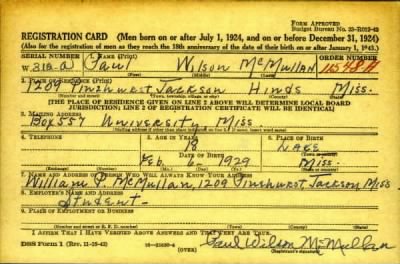 FORM APPROVED
Budget Bureau No. 33-R012-43
REGISTRATION CARD (Men born on or after July 1, 1924, and on or before December 31, 1924)
(Also for the registration of men as they reach the 18th anniversary of the date of their birth on or after January 1, 1943.)
SERIAL NUMBER 1. NAME (Print) ORDER NUMBER
W. Paul Wilson McMullan
(First) (Middle) (Last)
2. PLACE OF RESIDENCE (Print)
1209 Pinehurst Jackson Hinds Miss.
(Number and street) (Town, township, village, or city) (County) (State)
[THE PLACE OF RESIDENCE GIVEN ON LINE 2 ABOVE WILL DETERMINE LOCAL BOARD
JURISDICTION; LINE 2 OF REGISTRATION CERTIFICATE WILL BE IDENTICAL]
3. MAILING ADDRESS
Box 557 University Miss.
4. TELEPHONE 5. AGE IN YEARS 6. PLACE OF BIRTH
18 Lake
DATE OF BIRTH
Feb. 6, 1929 Miss.
7. NAME AND ADDRESS OF PERSON WHO WILL ALWAYS KNOW YOUR ADDRESS
William P. McMullan, 1209 Pinehurst, Jackson Miss
8. EMPLOYER'S NAME AND ADDRESS
Student
9. PLACE OF EMPLOYMENT OR BUSINESS
(Number and street or R. F. D. number) (Town) (County) (State)
I AFFIRM THAT I HAVE VERIFIED ABOVE ANSWERS AND THAT THEY ARE TRUE.
DSS Form 1 (Rev. 11-16-42) (OVER) Paul Wilson McMullan